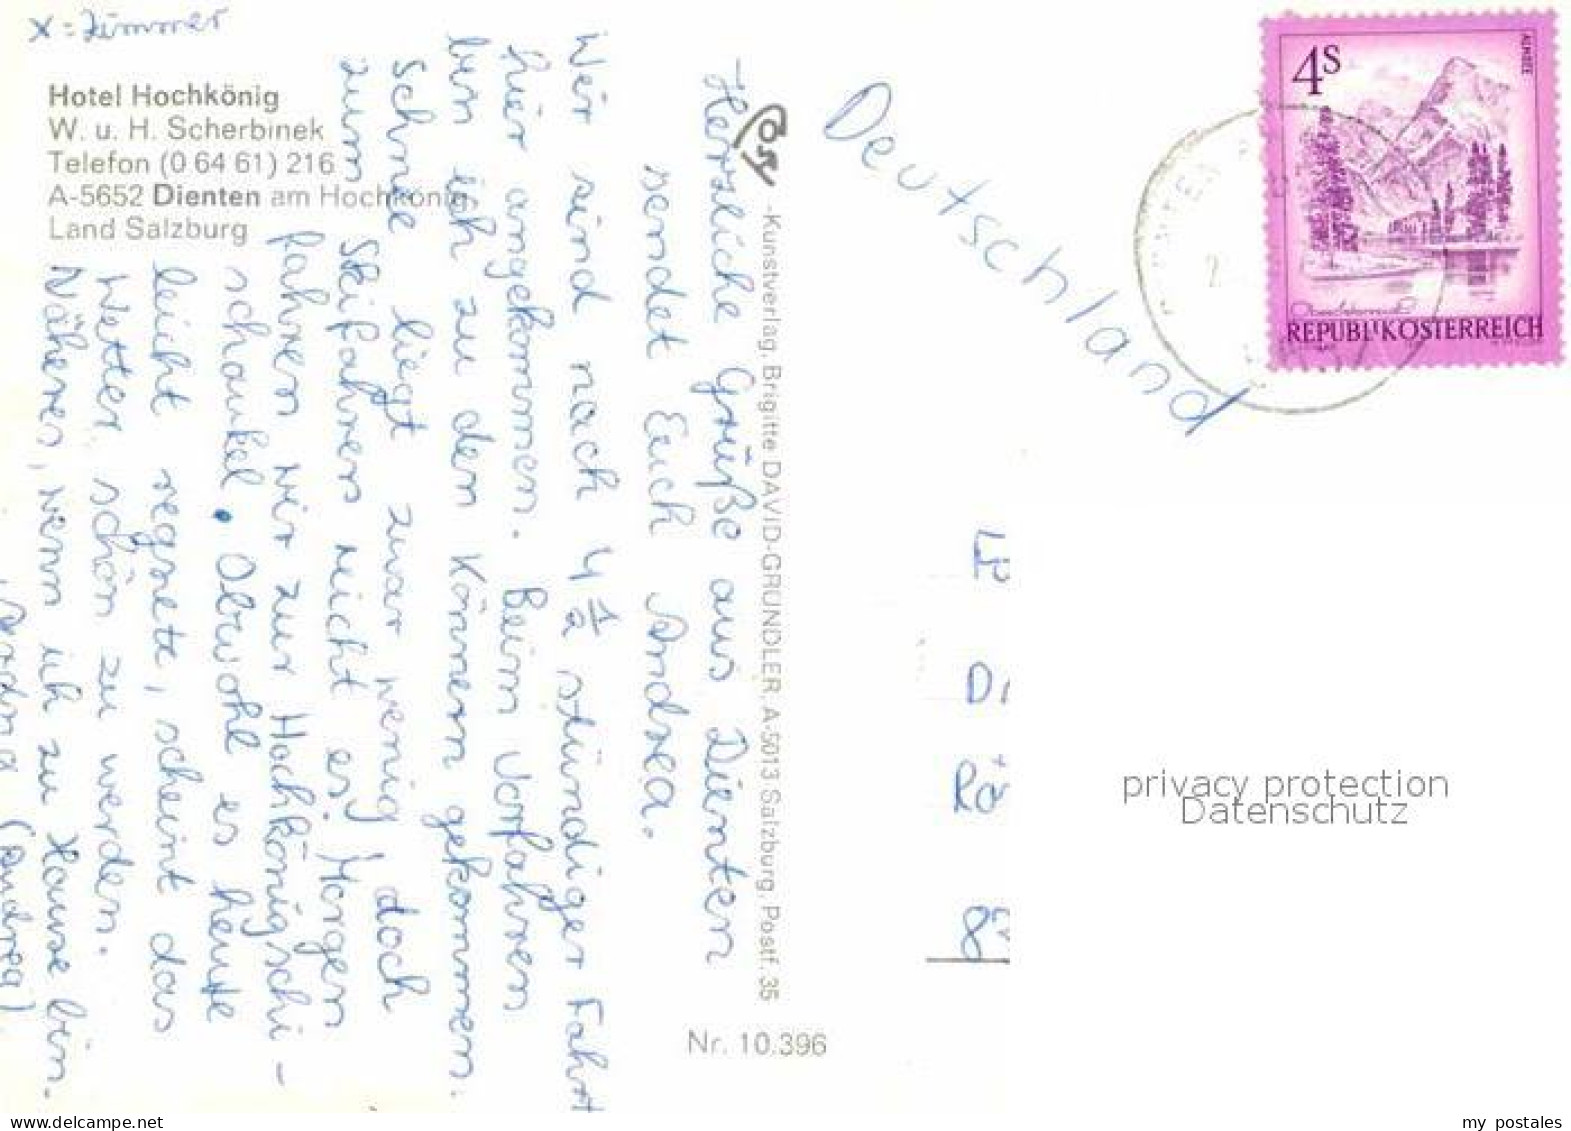 x = Zimmer
Hotel Hochkönig
W. u. H. Scherbinek
Telefon (0 64 61) 216
A-5652 Dienten am Hochkönig,
Land Salzburg
Herzliche Grüße aus Dienten
sendet Euch Andrea.
Wir sind nach 4 1/2 stündiger Fahrt
hier angekommen. Beim Vorfahren
bin ich zu dem Können gekommen.
Schnee liegt zwar wenig, doch
zum Skifahren reicht es. Morgen
fahren wir zur Hochkönigschi-
schaukel. Obwohl es heute
leicht regnete, scheint das
Wetter schön zu werden.
Näheres, wenn ich zu Hause bin.
(Andrea)
Cosy
-Kunstverlag, Brigitte DAVID-GRÜNDLER, A-5013 Salzburg, Postf. 35
Nr. 10.396
Deutschland
4S
ALMSEE
REPUBLIK ÖSTERREICH
privacy protection
Datenschutz
my-postales.delcampe.net
my_postales